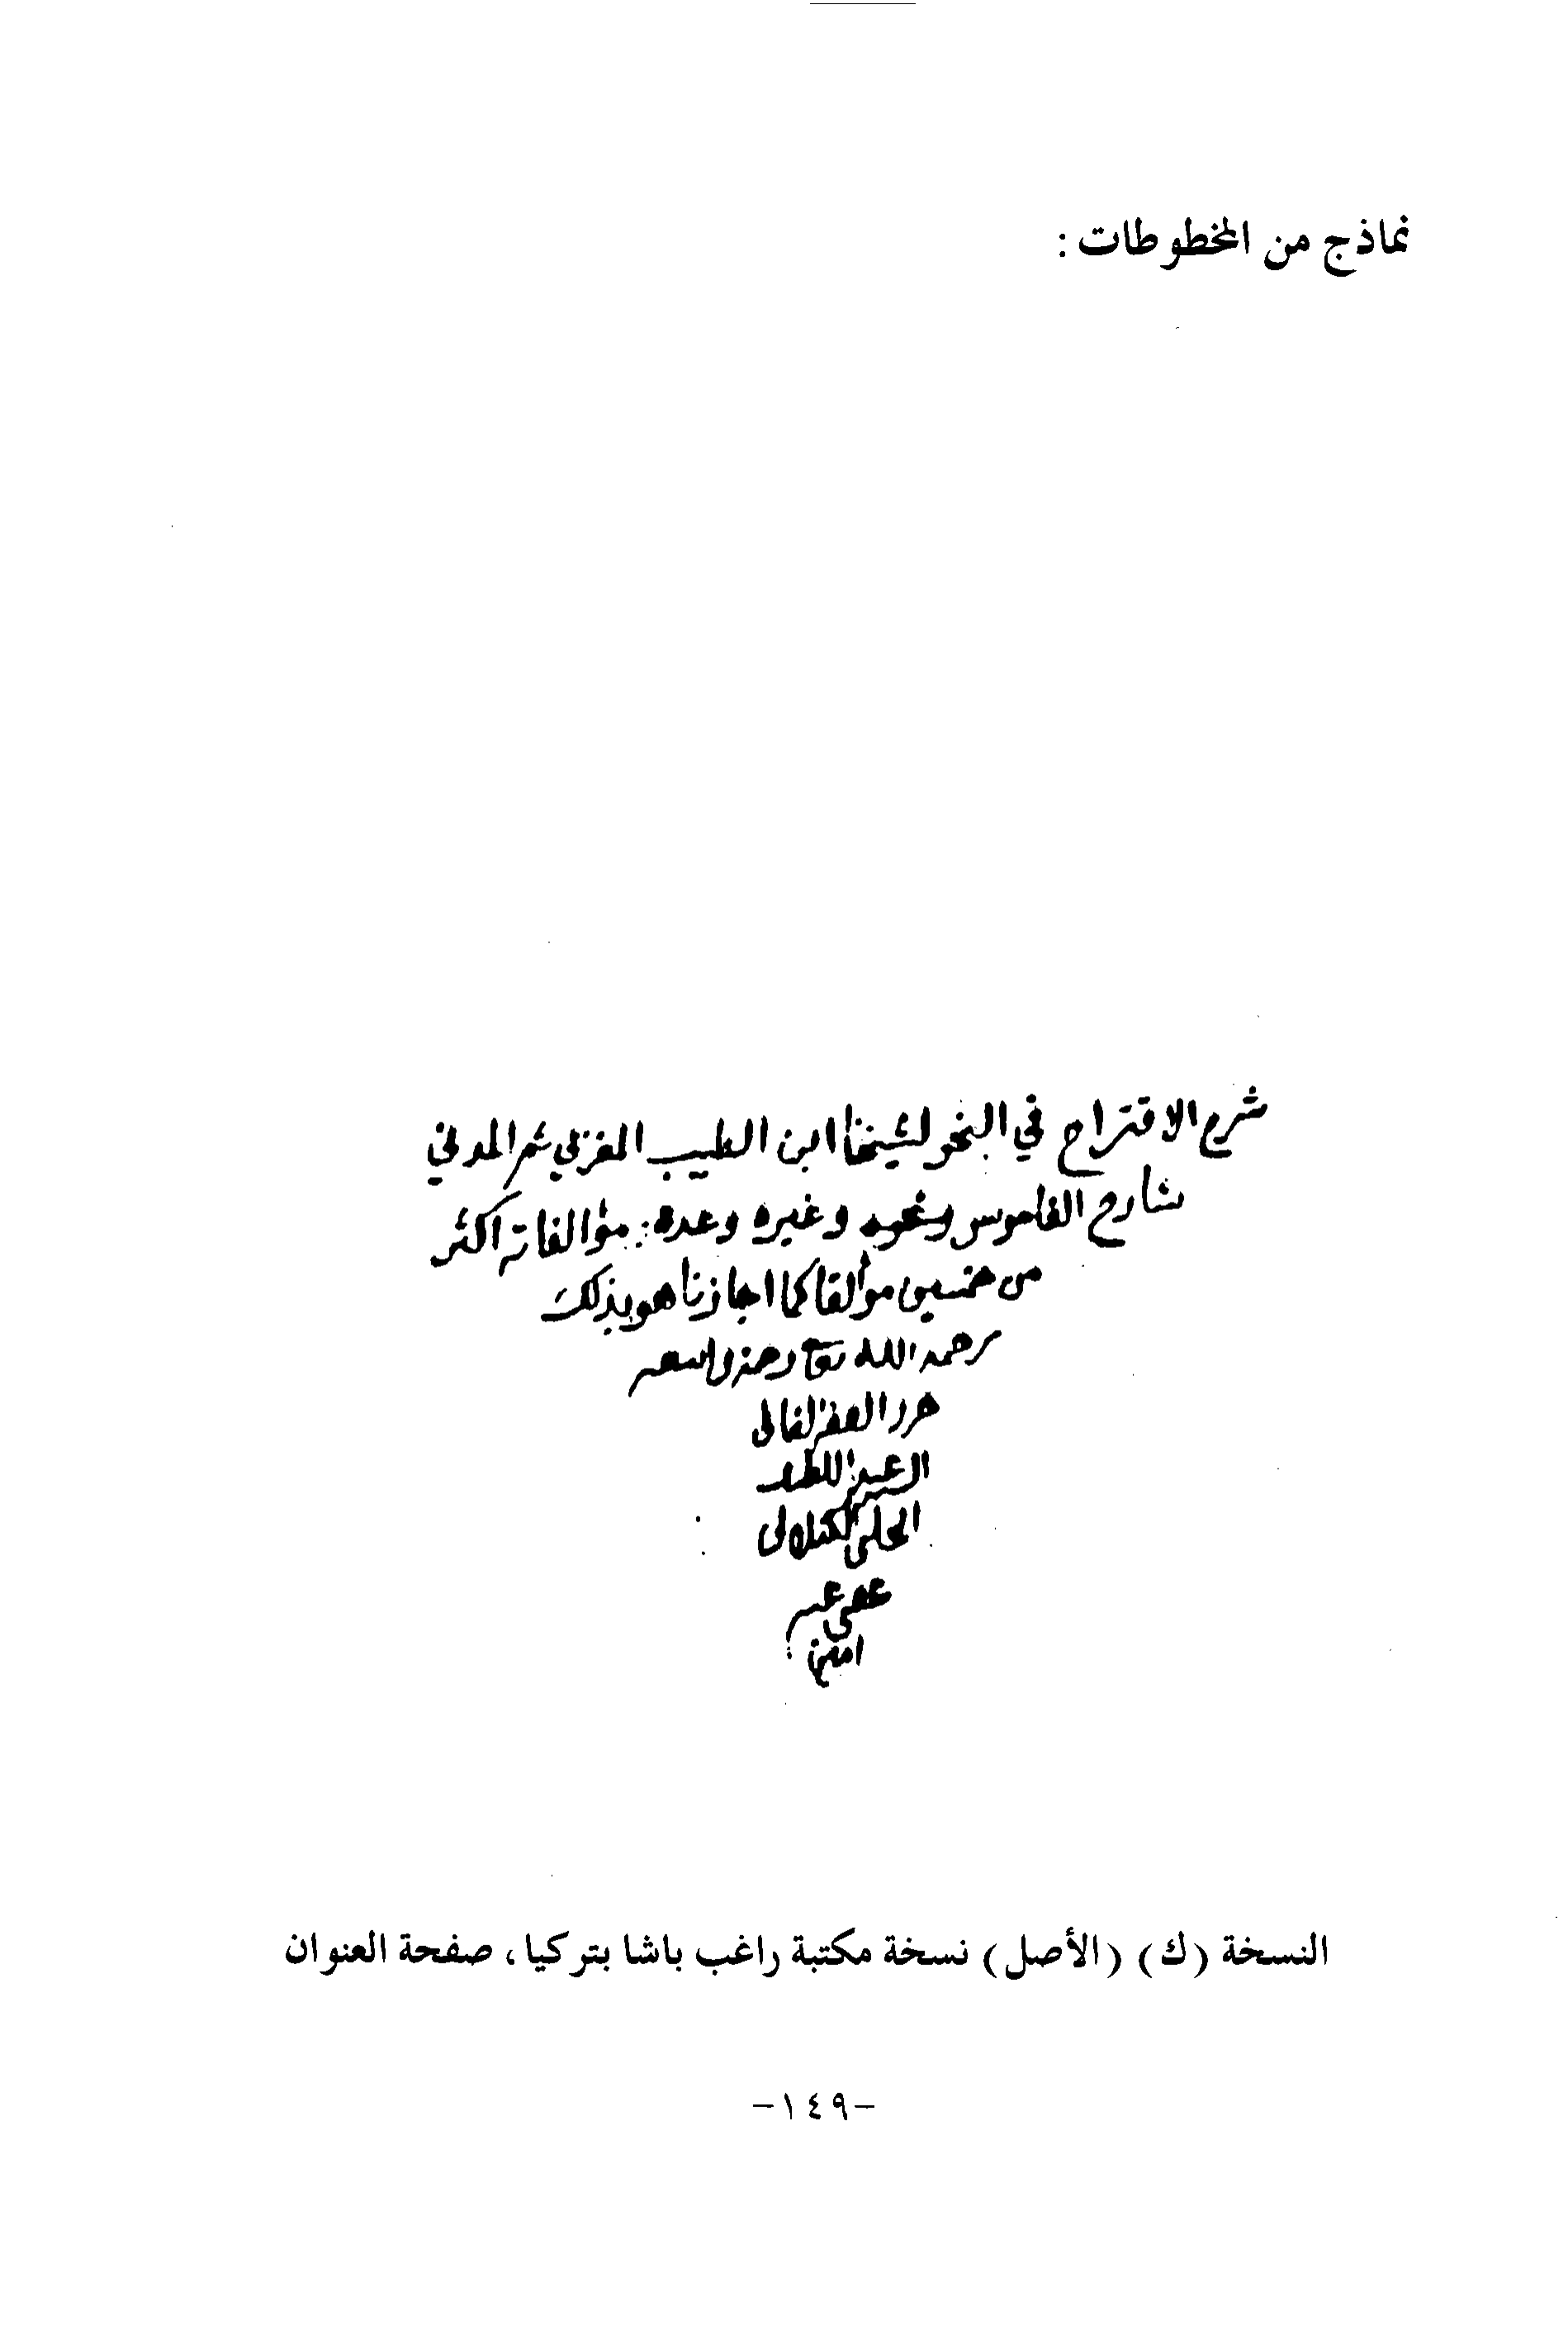 نماذج من المخطوطات :
شرح الاقتراح في النحو لشيخنا ابن الطيب المغربي ثم المدني
شارح القاموس ونحوه وغيره وعدة مؤالفاته اكثر
من خمسين مؤالفا كما اجازنا هو بذلك
رحمه الله تعالى رحمة واسعة
حرره الفقير
عبد اللطيف
عفى عنه
امين
النسخة (ك) (الأصل) نسخة مكتبة راغب باشا بتركيا، صفحة العنوان
-١٤٩-